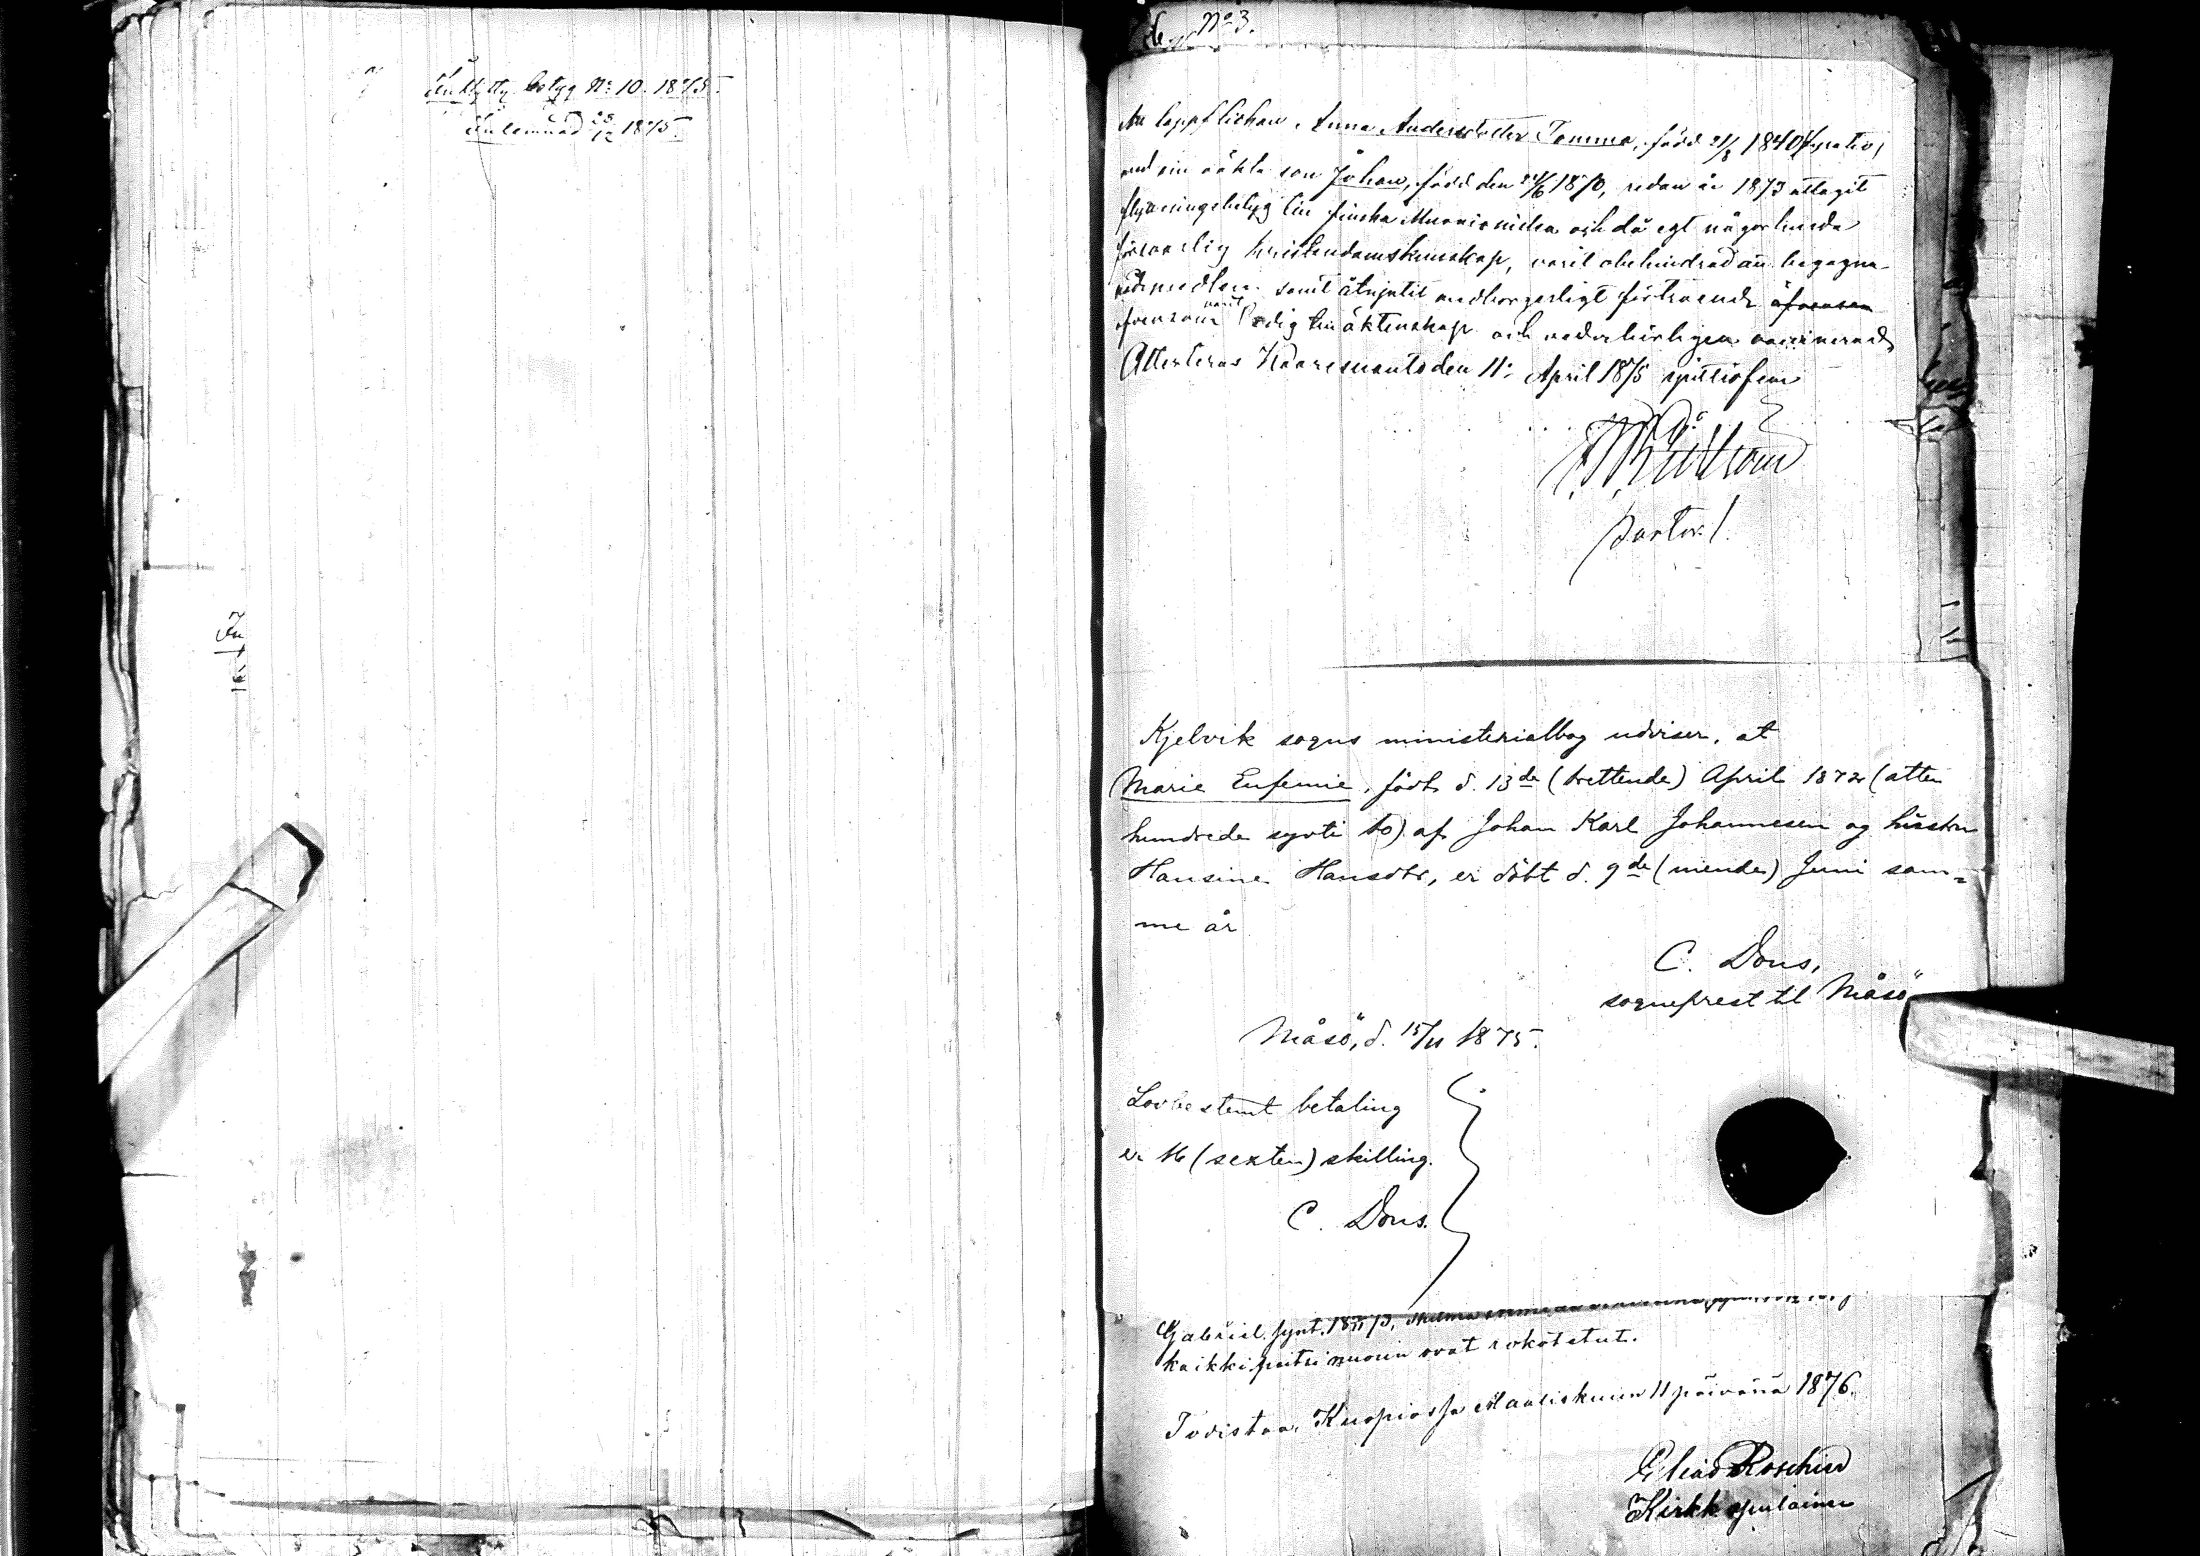 Inflyttn. betyg No 10. 1875.
Inlemnad 28/12 1875.
No 3.
Att lappflickan Anna Andersdotter Tomma, född 21/3 1840 (fyratio)
med sin oäkta son Johan, född den 24/6 1870, redan år 1873 uttagit
flyttningsbetyg till finska Muonioniska och då egt någorlunda
försvarlig kristendomskunskap, varit obehindrad att begagna
nådemedlen samt åtnjutit medborgerligt förtroende äfvensom
äfvensom varit ledig till äktenskap och vederbörligen vaccinerad,
Attesteras Karesuanto den 11: April 1875 sjuttiofem
Pastor.
Kjelvik sogns ministerialbog udviser, at
Marie Eufemie, født d. 13de (trettende) April 1872 (atten
hundrede sytti to) af Johan Karl Johannesen og hustru
Hansine Hansdtr, er döbt d. 9de (niende) Juni sam=
me år
C. Dons,
sogneprest til Måsö
Måsö, d. 15/11 1875.
Lovbestemt betaling
er 16 (sexten) skilling.
C. Dons.
Gabriel synt. 18
kaikki paitsi nuorin ovat rokotetut.
Todistaa. Kuopiossa Maaliskuun 11 päivänä 1876.
Kirkkoherralainen